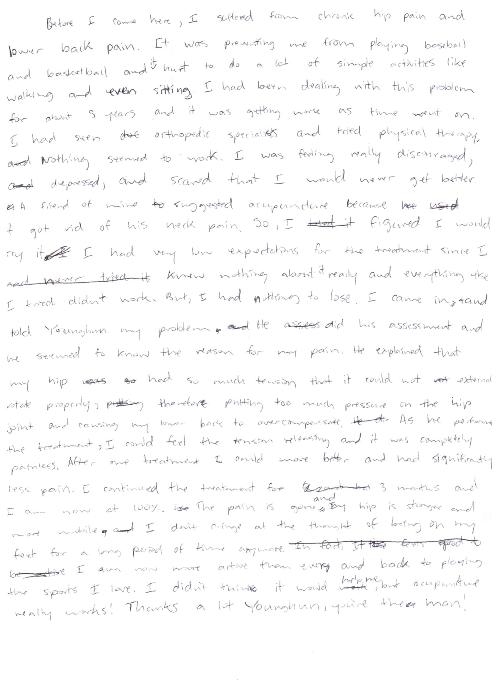 Before I came here, I suffered from chronic hip pain and
lower back pain. It was preventing me from playing baseball
and basketball and it hurt to do a lot of simple activities like
walking and even sitting I had been dealing with this problem
for about 5 years and it was getting worse as time went on.
I had seen orthopedic specialists and tried physical therapy,
Nothing seemed to work. I was feeling really discouraged,
depressed, and scared that I would never get better
A friend of mine suggested acupuncture because
it got rid of his neck pain. So, I figured I would
try it I had very low expectations for the treatment since I
knew nothing about it really and everything else
I tried didn't work. But, I had nothing to lose. I came in, and
told Younghun my problem. He did his assessment and
he seemed to know the reason for my pain. He explained that
my hip had so much tension that it could not
rotate properly, therefore putting too much pressure on the hip
joint and causing my lower back to overcompensate. As he performed
the treatment, I could feel the tension releasing and it was completely
painless. After one treatment I could move better and had significantly
less pain. I continued the treatment for 3 months and
I am now at 100%. The pain is gone and my hip is stronger and
more mobile, and I don't cringe at the thought of being on my
feet for a long period of time anymore
I am now more active than ever and back to playing
the sports I love. I didn't think it would help me, but acupuncture
really works! Thanks a lot Younghun, you're the man!